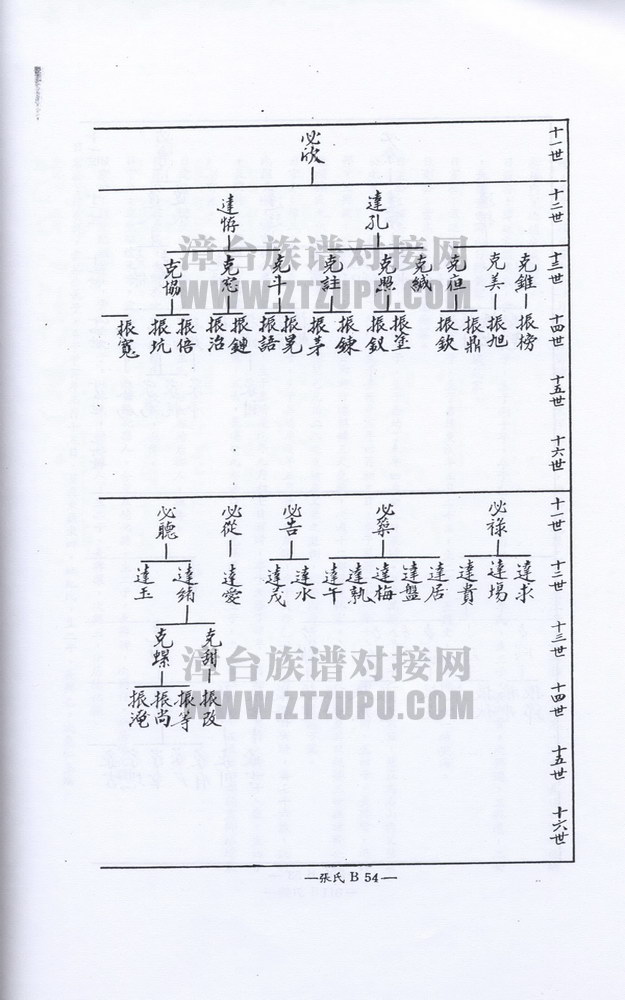 十一世
必欣
十二世
達孔
達悕
十三世
克錐
克美
克亱
克緘
克照
克註
克斗
克窓
克協
十四世
振榜
振旭
振鼎
振欽
振塗
振釵
振鍊
振茅
振晃
振語
振鏈
振治
振倍
振坑
振寬
十五世
十六世
十一世
必祿
必藥
必告
必從
必聽
十二世
達求
達場
達貴
達居
達盤
達梅
達執
達午
達水
達茂
達愛
達綿
達玉
十三世
克甜
克螺
十四世
振改
振等
振尚
振淹
十五世
十六世
漳台族谱对接网
WWW.ZTZUPU.COM
漳台族谱对接网
WWW.ZTZUPU.COM
—張氏 B 54—